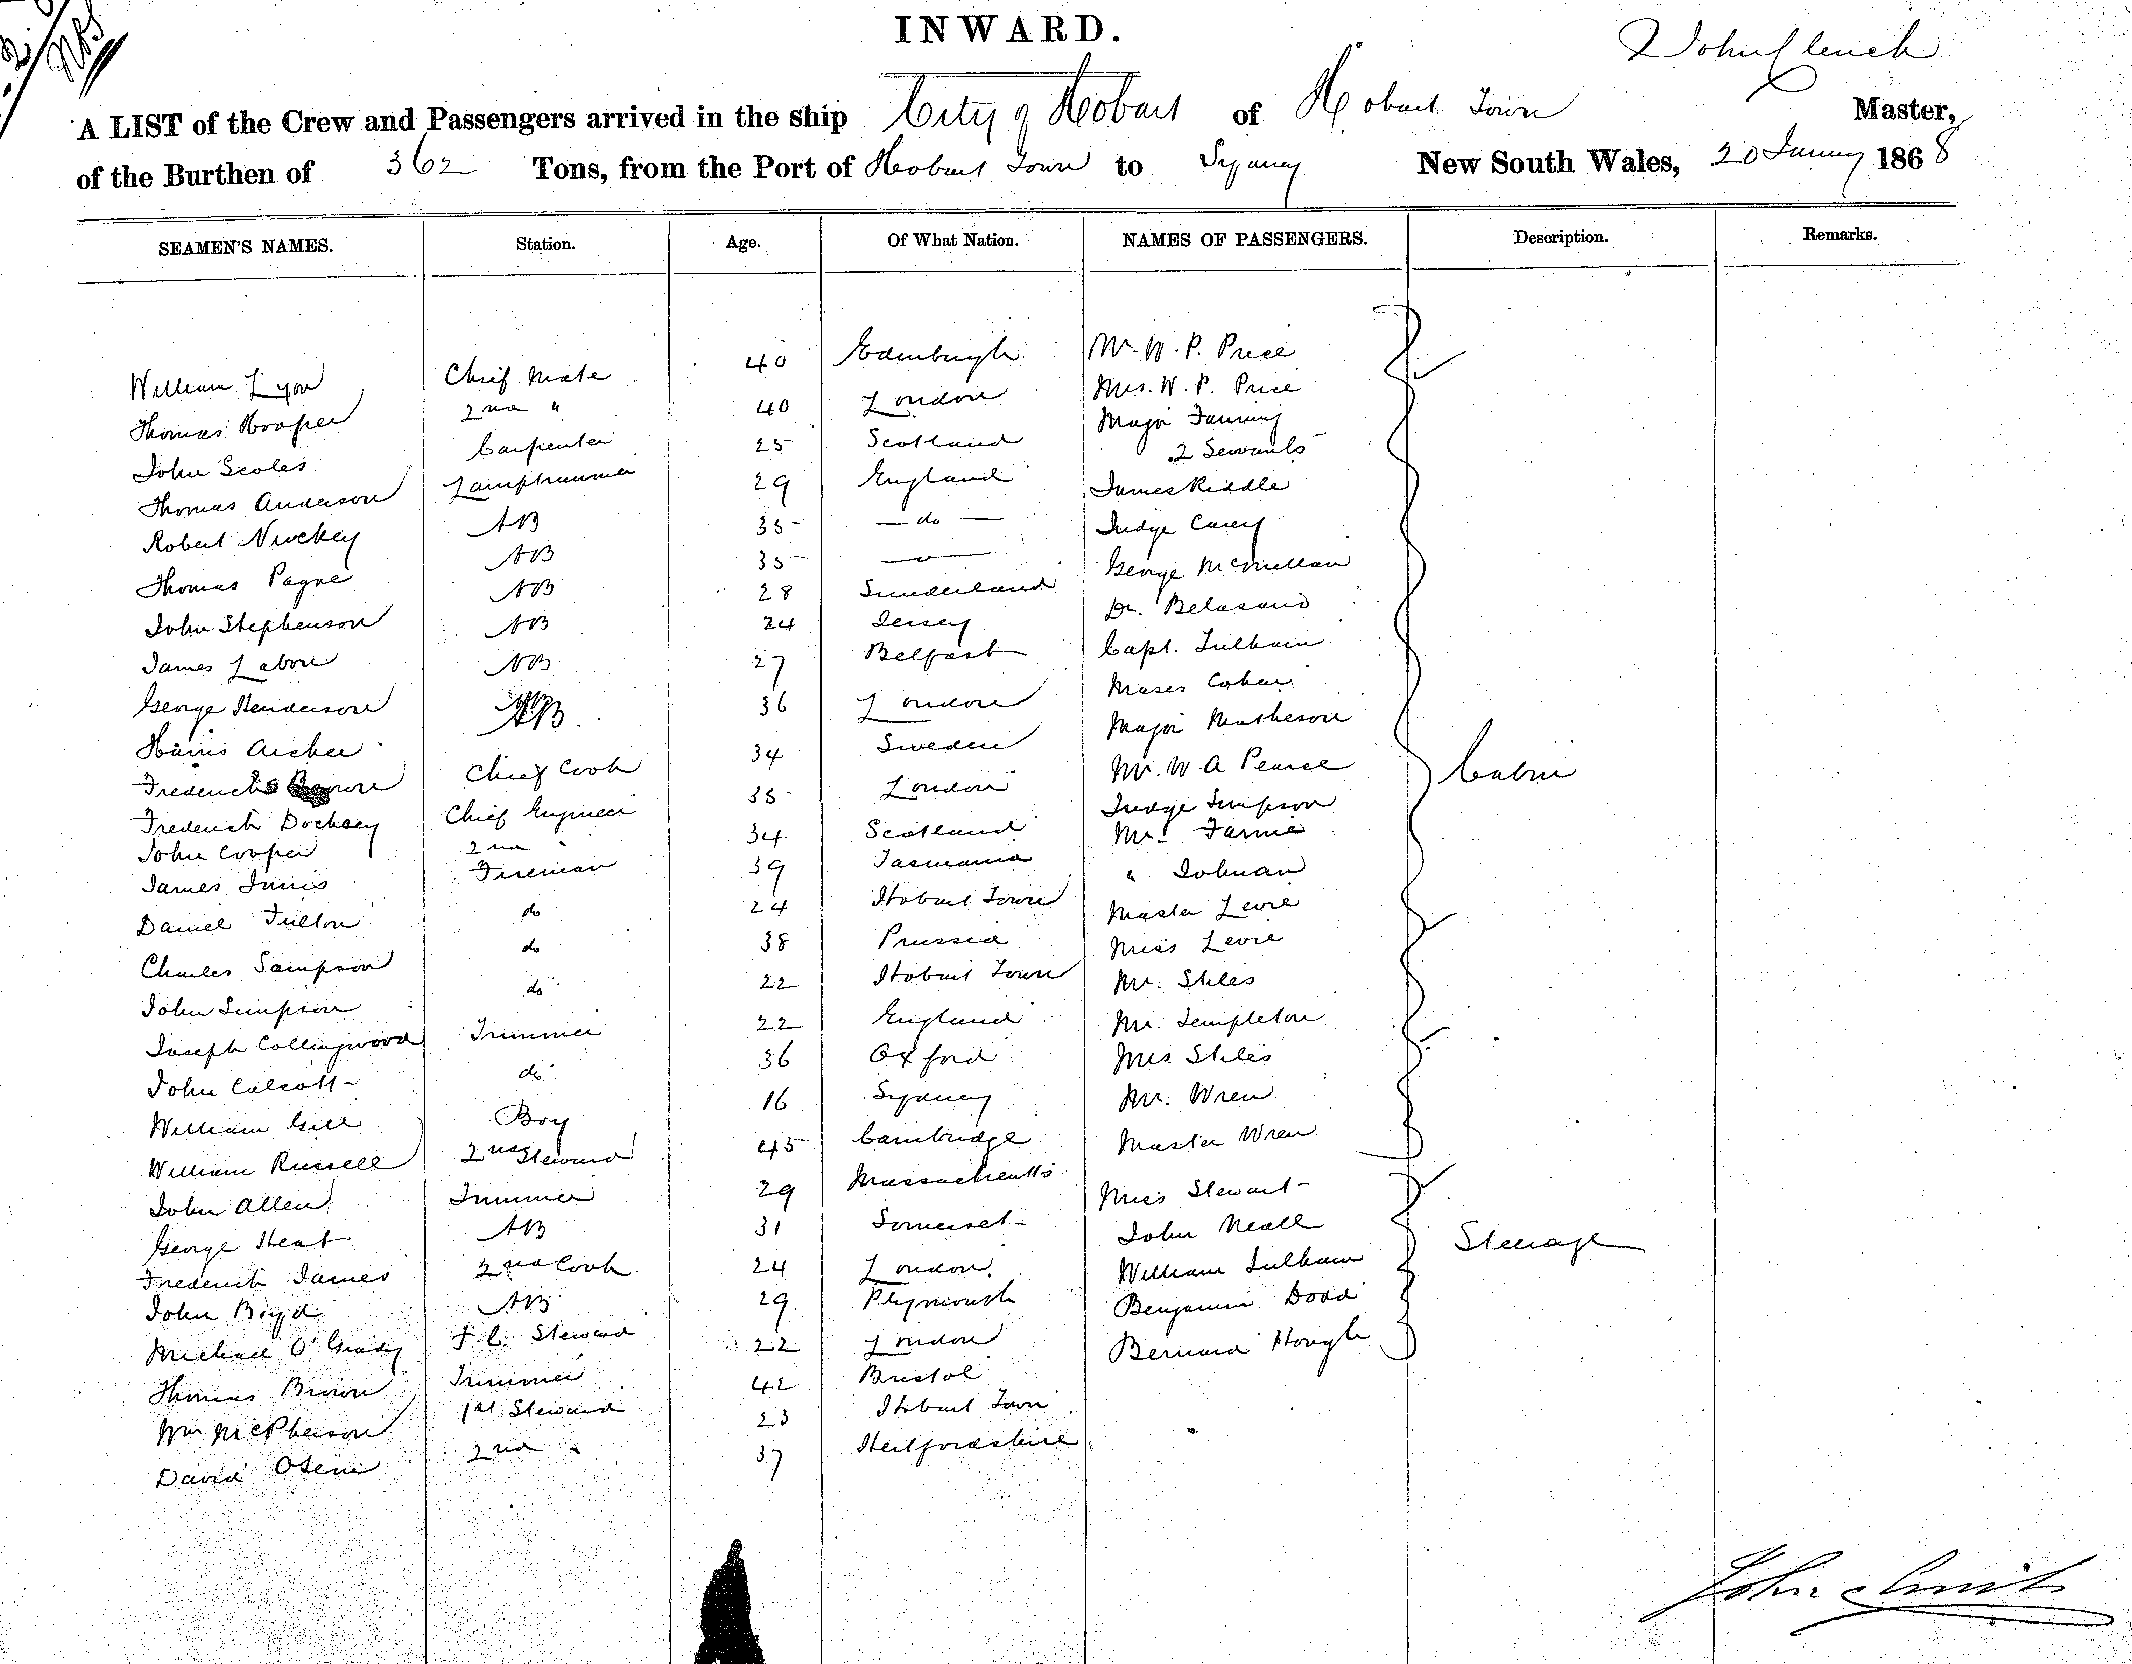 INWARD.
John Clinch
A LIST of the Crew and Passengers arrived in the ship City of Hobart of Hobart Town Master,
of the Burthen of 362 Tons, from the Port of Hobart Town to Sydney New South Wales, 20 January 1868
SEAMEN'S NAMES. Station. Age. Of What Nation. NAMES OF PASSENGERS. Description. Remarks.
William Lyon Chief Mate 40 Edinburgh Mr. W. P. Price
Thomas Hooper 2nd " 40 London Mrs. W. P. Price
John Scoles Carpenter 25 Scotland Major Fanning
Thomas Anderson Lamptrimmer 29 England 2 Servants
Robert AB 35 — do — James Riddle
Thomas Payne AB 35 — " — Judge Carey
John Stephenson AB 28 Sunderland George McMillan
James Labore AB 24 Jersey Dr. Belasario
George Henderson AB 27 Belfast Capt. Fulham
Harris Archer AB 36 London Moses Cohen
Frederick Chief Cook 34 Sweden Major Matheson
Frederick Dockeey Chief Engineer 35 London Mr. W A Pearce Cabin
John Cooper 2nd " 34 Scotland Judge Simpson
James Innis Fireman 39 Tasmania Mr.
Daniel Fulton do 24 Hobart Town "
Charles Sampson do 38 Prussia Master Levie
John Simpson do 22 Hobart Town Miss Levie
Joseph Collingwood Trimmer 22 England Mr. Stiles
John Calcott do 36 Oxford Mr. Templeton
William Gill Boy 16 Sydney Mrs Stiles
William Russell 2nd Steward 45 Cambridge Mr. Wren
John Allen Trimmer 29 Massachusetts Master Wren
George Heat AB 31 Somerset Miss Stewart
Frederick James 2nd Cook 24 London John Neall Steerage
John Boyd AB 29 Plymouth William Fulham
Michael O'Grady F C. Steward 22 London Benjamin Dodd
Thomas Brown Trimmer 42 Bristol Bernard Hough
Wm McPherson 1st Steward 23 Hobart Town
David 2nd " 37 Hertfordshire
John Clinch